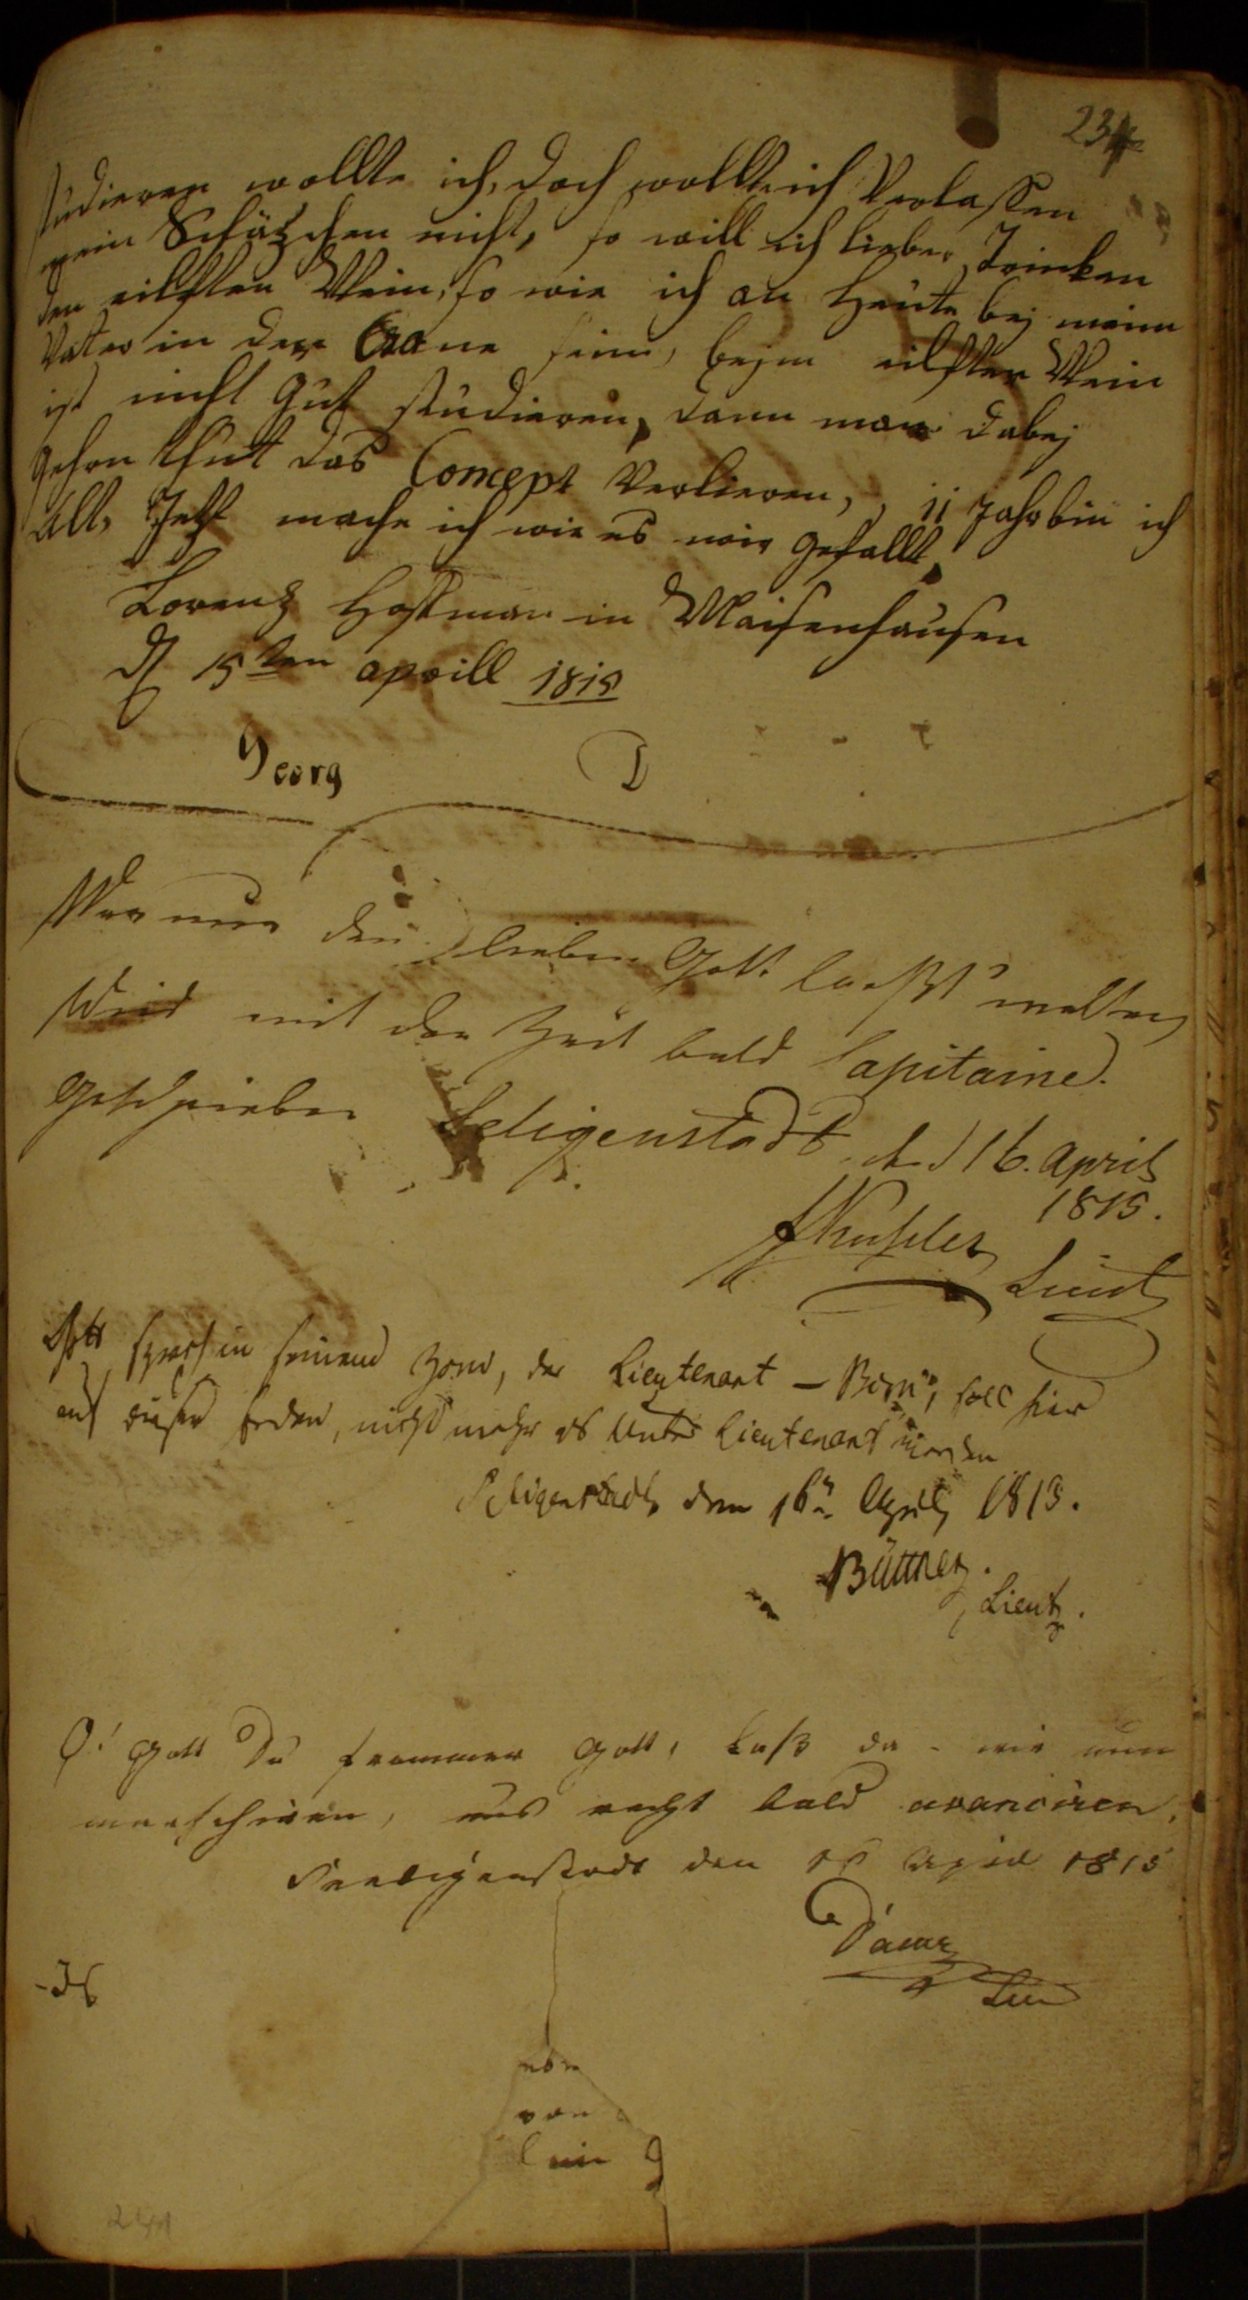 234
studieren wollte ich, doch wollte ich Verlassen
mein Schätzchen nicht, so will ich lieber Trinken
den eilfter Wein, so wie ich an Heute bej meinem
Vatter in der Crone sein, bejm eilfter Wein
ist nicht Gut studieren, dann man dabej
gehrn thut das Concept Verlieren, 11 Jahr bin ich
Alt, Jetz mache ich wie es mir gefallt
Lorenz Hoffman in Maisenhausen
D 15ten aprill 1815
Georg D
Wer nur den lieben Gott laeßt walten
Wird mit der Zeit bald Capitaine.
Geschrieben Seligenstadt d 16. April
1815.
Lieut
Gott sprach in seinem Zorn, der Lieutenant – Born, soll hier
auf dießer Erden, nicht mehr als Unter Lieutenant werden
Seligenstadt, den 16n April 1815.
Büttner.
Lieut.
O! Gott Du frommer Gott, laß da wir nun
marschiren, uns recht bald avanciren,
Seeligenstadt den 16 April 1815
von
241